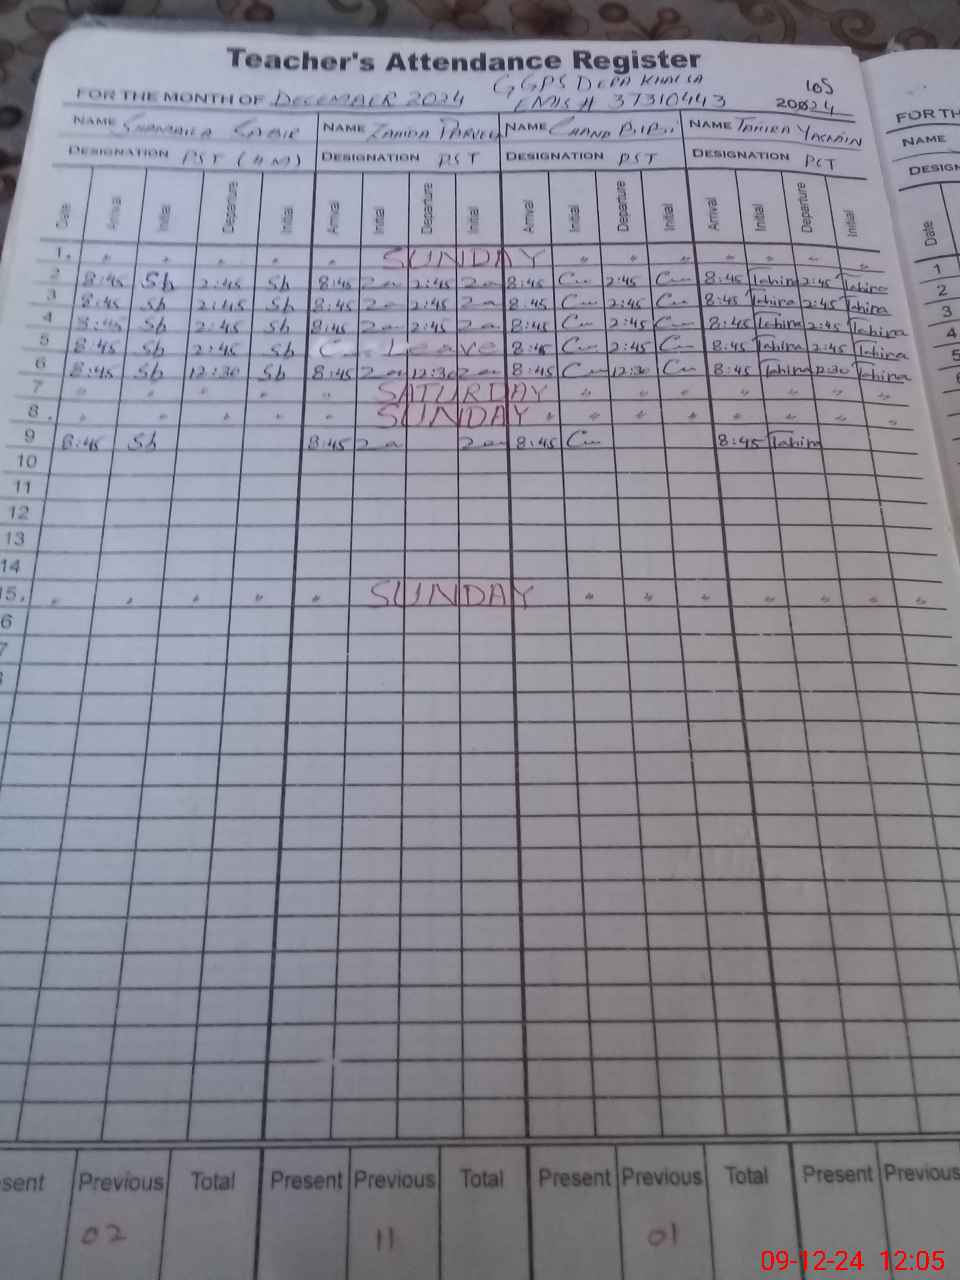 Teacher's Attendance Register
GGPS DEPA KHALSA
FOR THE MONTH OF DECEMBER 2024 EMIS # 37310443
FOR TH
NAME SHAMAILA SABIR NAME ZAHIDA PARVEEN NAME CHAND BIBI NAME TAHIRA YASMIN NAME
DESIGNATION PST (HM) DESIGNATION PST DESIGNATION PST DESIGNATION PST DESIGN
Date Arrival Initial Departure Initial Arrival Initial Departure Initial Arrival Initial Departure Initial Arrival Initial Departure Initial Date
1. " " " " " SUNDAY " " " " " " 1
2 8:45 Sb 2:45 Sb 8:45 Za 2:45 Za 8:45 2:45 8:45 Tahira 2:45 Tahira 2
3 8:45 Sb 2:45 Sb 8:45 Za 2:45 Za 8:45 2:45 8:45 Tahira 2:45 Tahira 3
4 8:45 Sb 2:45 Sb 8:45 Za 2:45 Za 8:45 2:45 8:45 Tahira 2:45 Tahira 4
5 8:45 Sb 2:45 Sb C. Leave 8:45 2:45 8:45 Tahira 2:45 Tahira 5
6 8:45 Sb 12:30 Sb 8:45 Za 12:30 Za 8:45 12:30 8:45 Tahira 12:30 Tahira 6
7 " " " " " SATURDAY " " " " " "
8. " " " " " SUNDAY " " " " " " "
9 8:45 Sb 8:45 Za Za 8:45 8:45 Tahira
10
11
12
13
14
15. " " " " " SUNDAY " " " " " " "
6
7
sent Previous Total Present Previous Total Present Previous Total Present Previous
02 11 01
09-12-24 12:05